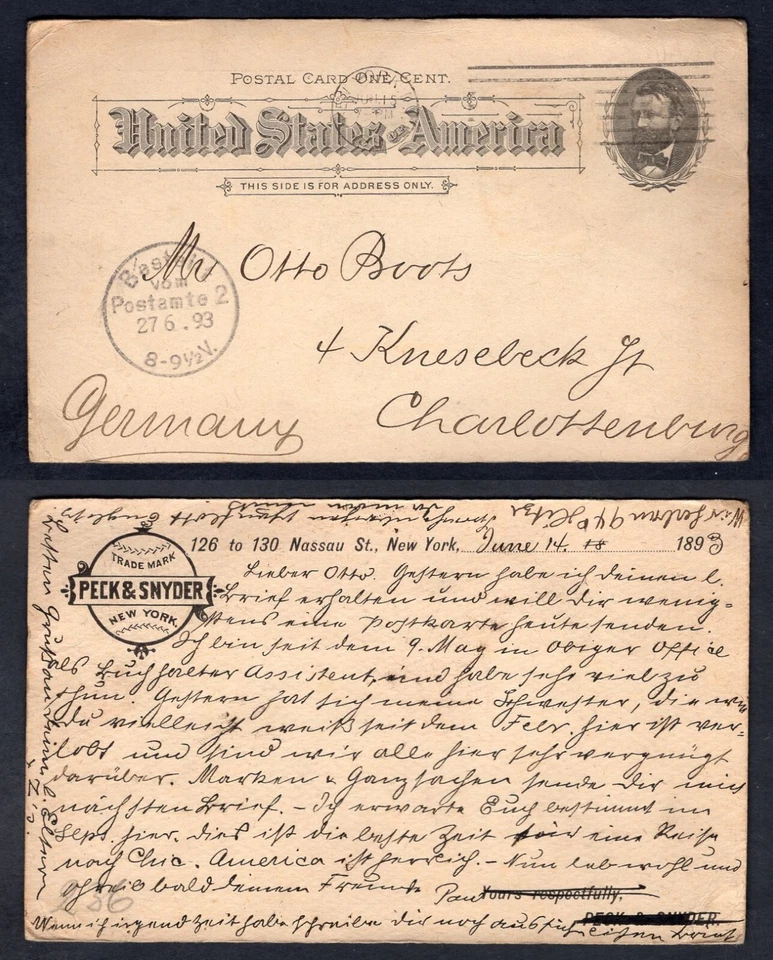 POSTAL CARD ONE CENT.
United States of America
THIS SIDE IS FOR ADDRESS ONLY.
Bestellt
vom
Postamte 2
27 6. 93
8-9½V.
Mr Otto Boots
4 Knesebeck St
Charlottenburg
Germany
TRADE MARK
PECK & SNYDER
NEW YORK
126 to 130 Nassau St., New York, June 14. 18 1893
Lieber Otto. Gestern habe ich deinen l.
Brief erhalten und will dir wenig-
stens eine Postkarte heute senden.
Ich bin seit dem 9. May in obiger Office
als Buchhalter Assistent, und habe sehr viel zu
thun. Gestern hat sich meine Schwester, die wie
du vielleicht weißt seit dem Febr. hier ist ver-
lobt und sind wir alle hier sehr vergnügt
darüber. Marken & Ganzsachen sende dir im
nächsten Brief. – Ich erwarte Euch bestimmt im
Sept. hier. dies ist die beste Zeit für eine Reise
nach Chic. America ist herrlich. – Nun leb wohl und
schreib bald deinem Freunde Paul
Yours respectfully,
PECK & SNYDER.
Wenn ich irgend Zeit habe schreibe dir noch ausführlichen Brief
Besten Gruß an deine l. Eltern
236
Wir haben 94° Hitze